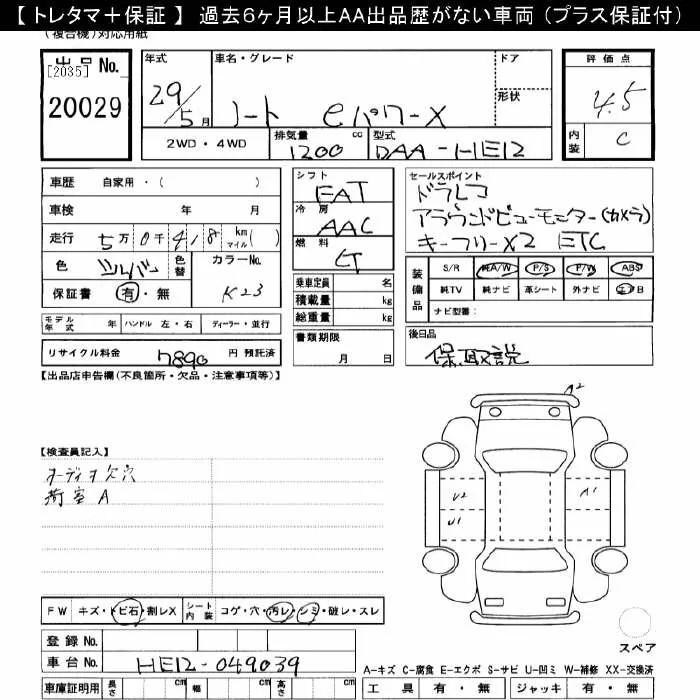 【 トレタマ＋保証 】 過去6ヶ月以上AA出品歴がない車両（プラス保証付）
(複合機)対応用紙
出品No. [2035] 20029
年式 29/5月
車名・グレード ノート eパワーX
ドア
形状
評価点 4.5
内装 C
2WD・4WD
排気量 1200 cc
型式 DAA-HE12
車歴 自家用・( )
車検 年 月
走行 5万0千418 km マイル( )
色 シルバー 色替 カラーNo. K23
保証書 有・無
シフト FAT
冷房 AAC
燃料
乗車定員 名
積載量 kg
総重量 kg
セールスポイント
ドラレコ
アラウンドビューモニター(カメラ)
キーフリーX2 ETC
装備品 S/R 純A/W P/S P/W ABS
純TV 純ナビ 革シート 外ナビ エアB
ナビ型番:
モデル年式 年 ハンドル 左・右 ディーラー・並行
書類期限 月 日
後日品 保、取説
リサイクル料金 7890 円 預託済
【出品店申告欄(不良箇所・欠品・注意事項等)】
【検査員記入】
オーディオ欠穴
荷室A
A2
U2
U1
A1
FW キズ・トビ石・割レX シート内装 コゲ・穴・汚レ・シミ・破レ・スレ
登録No.
車台No. HE12-049039
スペア
A-キズ C-腐食 E-エクボ S-サビ U-凹ミ W-補修 XX-交換済
車庫証明用 長さ cm 幅 cm 高さ cm
工具 有・無 ジャッキ 有・無